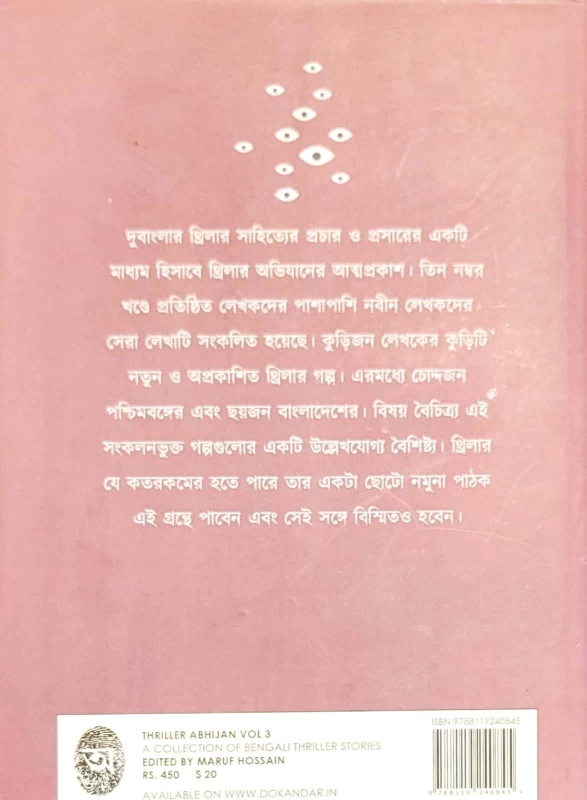 দুবাংলার থ্রিলার সাহিত্যের প্রচার ও প্রসারের একটি
মাধ্যম হিসাবে থ্রিলার অভিযানের আত্মপ্রকাশ। তিন নম্বর
খণ্ডে প্রতিষ্ঠিত লেখকদের পাশাপাশি নবীন লেখকদের
সেরা লেখাটি সংকলিত হয়েছে। কুড়িজন লেখকের কুড়িটি
নতুন ও অপ্রকাশিত থ্রিলার গল্প। এরমধ্যে চোদ্দজন
পশ্চিমবঙ্গের এবং ছয়জন বাংলাদেশের। বিষয় বৈচিত্র্য এই
সংকলনভুক্ত গল্পগুলোর একটি উল্লেখযোগ্য বৈশিষ্ট্য। থ্রিলার
যে কতরকমের হতে পারে তার একটা ছোটো নমুনা পাঠক
এই গ্রন্থে পাবেন এবং সেই সঙ্গে বিস্মিতও হবেন।
THRILLER ABHIJAN VOL 3
A COLLECTION OF BENGALI THRILLER STORIES
EDITED BY MARUF HOSSAIN
RS. 450 $ 20
AVAILABLE ON WWW.DOKANDAR.IN
অ
ISBN 9788119240845
9 788119 240845